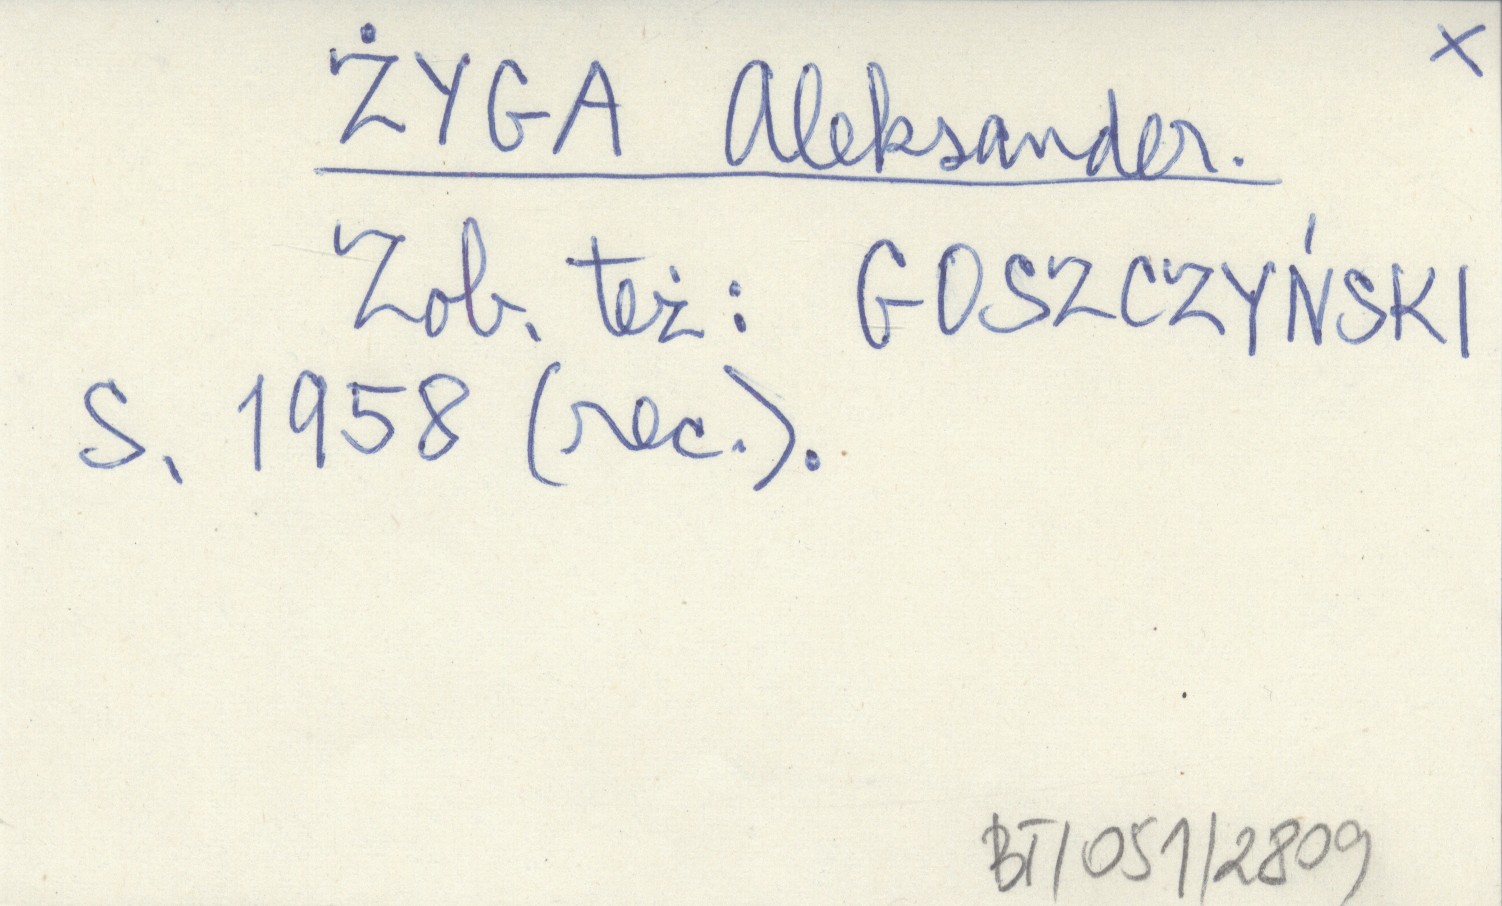 x
ŻYGA Aleksander.
Zob. też: GOSZCZYŃSKI
S. 1958 (rec.).
BT/051/2809